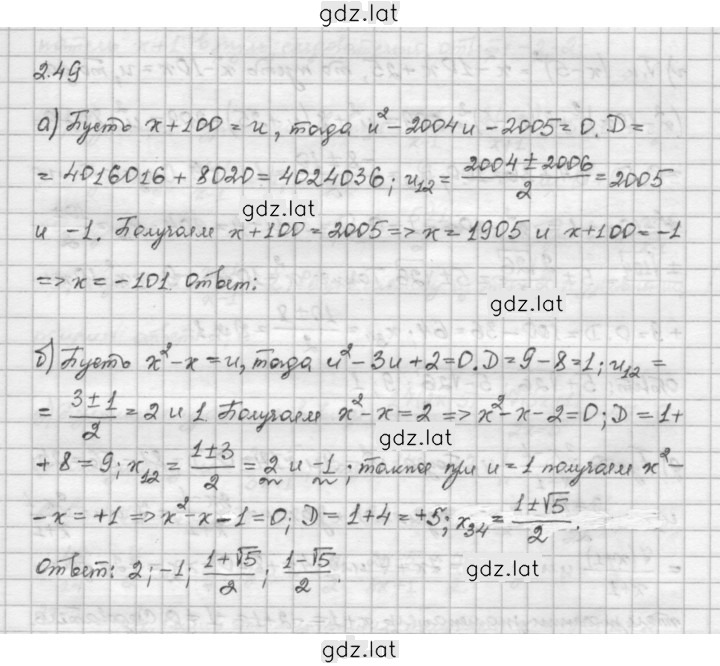 gdz.lat
2.49
а) Пусть x+100=u, тогда u²-2004u-2005=0. D=
= 4016016+8020=4024036; u₁₂= (2004±2006)/2 =2005
gdz.lat
и -1. Получаем x+100=2005=>x=1905 и x+100=-1
=>x=-101. Ответ:
gdz.lat
б) Пусть x²-x=u, тогда u²-3u+2=0. D=9-8=1; u₁₂=
= (3±1)/2 = 2 и 1. Получаем x²-x=2 => x²-x-2=0; D=1+
gdz.lat
+8=9; x₁₂= (1±3)/2 = 2 и -1; при u=1 получаем x²-
-x=+1 => x²-x-1=0; D=1+4=+5; x₃₄= (1±√5)/2.
Ответ: 2; -1; (1+√5)/2; (1-√5)/2.
gdz.lat
gdz.lat